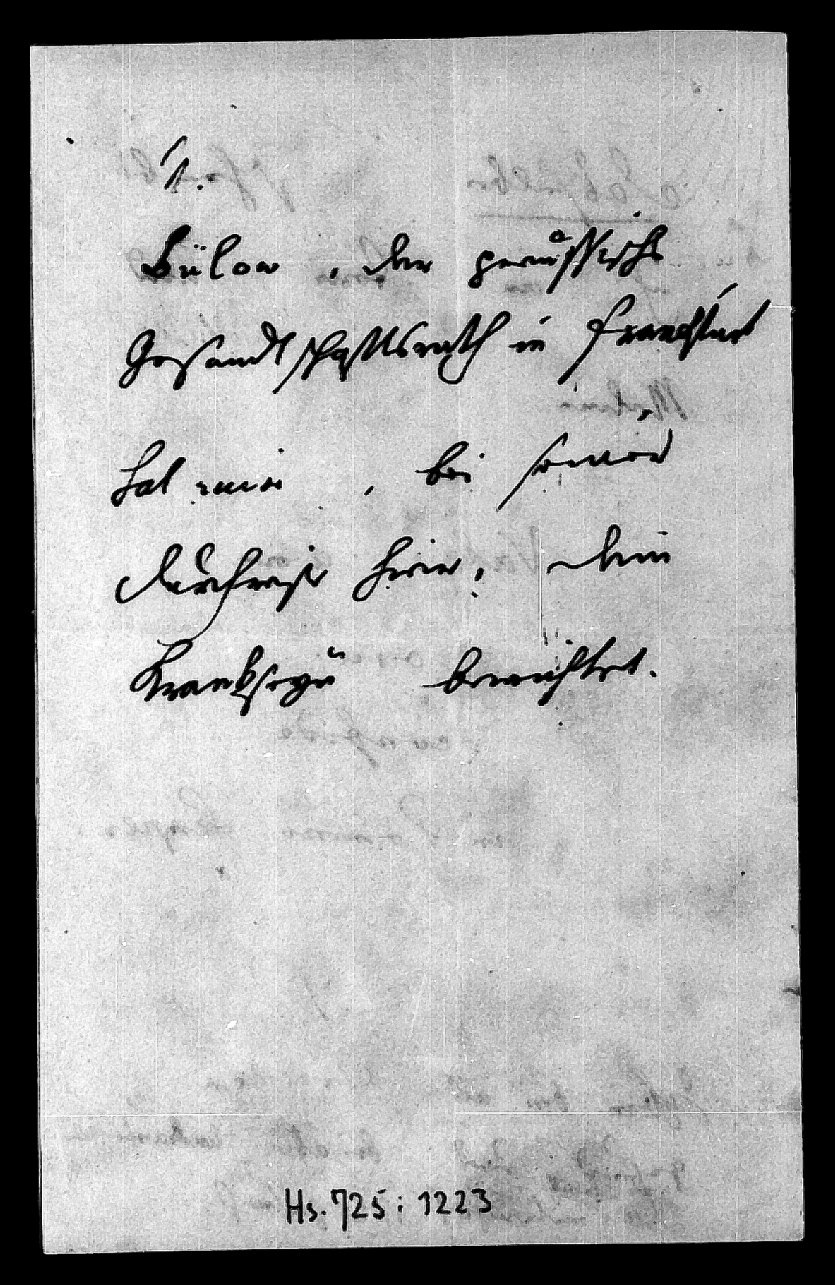 1.
Bülow, der preußische
Gesandtschaftsrath in Frankfurt
hat mir, bei seiner
Durchreise hier, Dein
Krankseyn berichtet.
Hs. 725: 1223